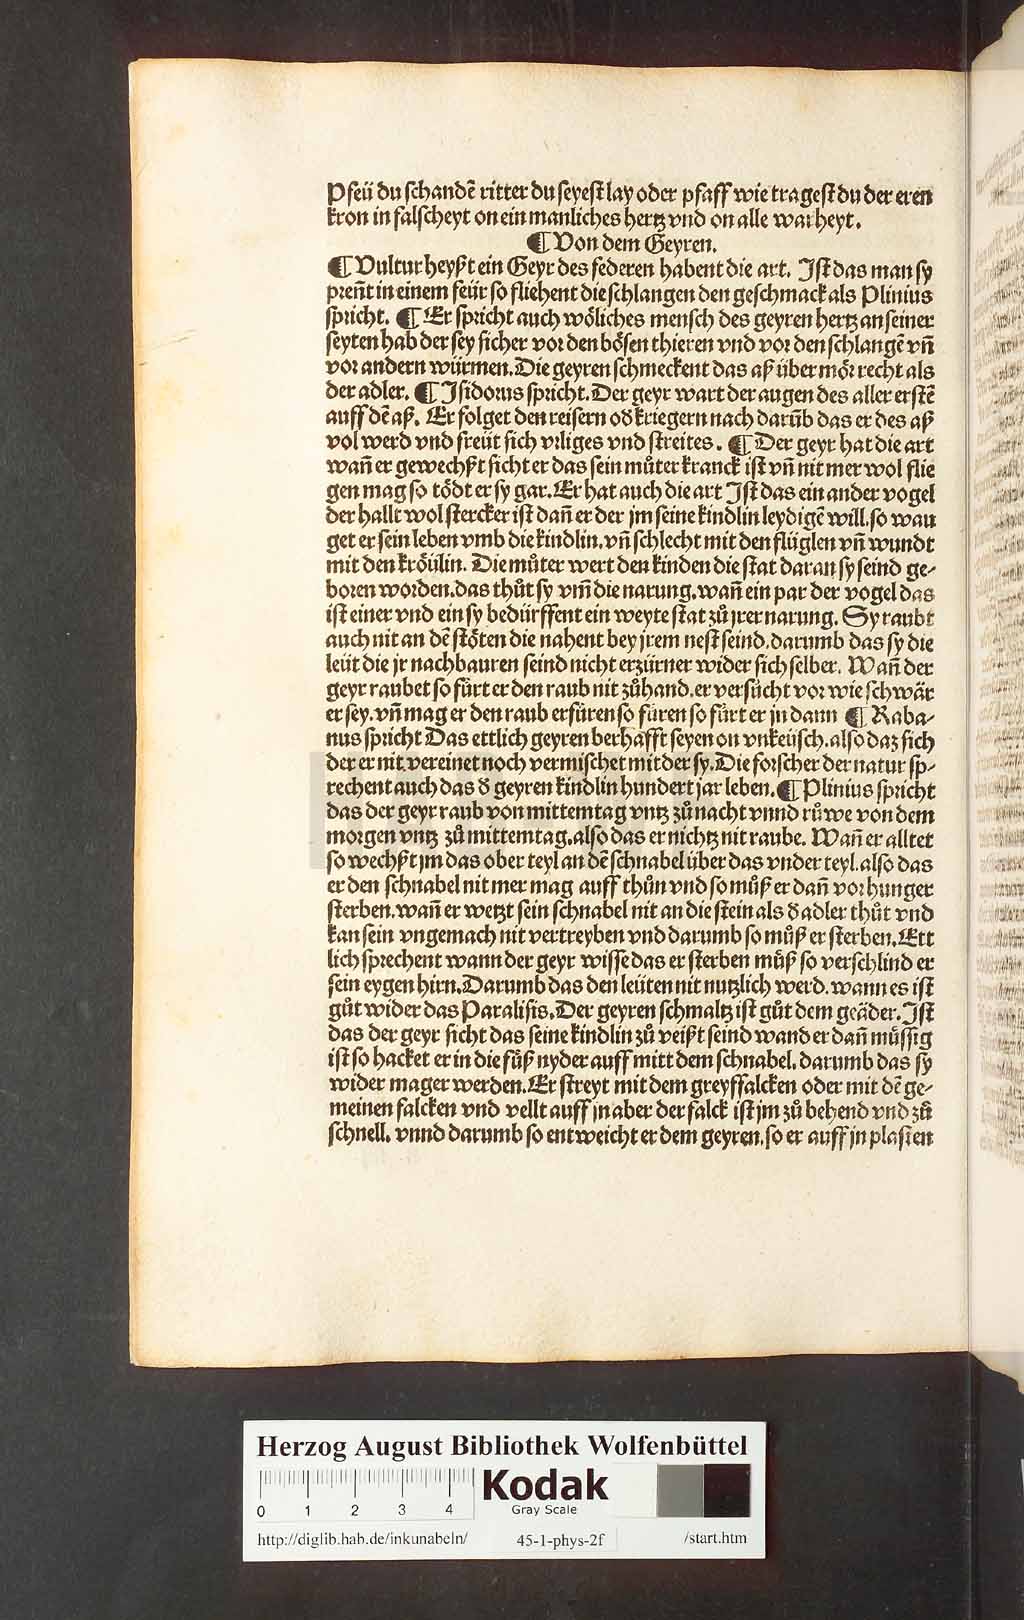 Pfeü du schandē ritter du seyest lay oder pfaff wie tragest du der eren
kron in falscheyt on ein manliches hertz vnd on alle warheyt.
¶ Von dem Geyren.
¶ Vultur heyßt ein Geyr des federen habent die art. Ist das man sy
preñt in einem feür so fliehent die schlangen den geschmack als Plinius
spricht. ¶ Er spricht auch wöliches mensch des geyren hertz an seiner
seyten hab der sey sicher vor den bösen thieren vnd vor den schlangē vñ
vor andern würmen. Die geyren schmeckent das aß über mör recht als
der adler. ¶ Isidorus spricht. Der geyr wart der augen des aller erstē
auff dē aß. Er folget den reisern oď kriegern nach darūb das er des aß
vol werd vnd freüt sich vrliges vnd streites. ¶ Der geyr hat die art
wañ er gewechßt sicht er das sein můter kranck ist vñ nit mer wol flie
gen mag so tödt er sy gar. Er hat auch die art Ist das ein ander vogel
der hallt wol stercker ist dañ er der jm seine kindlin leydigē will. so wau
get er sein leben vmb die kindlin. vñ schlecht mit den flüglen vñ wundt
mit den kröülin. Die můter wert den kinden die stat daran sy seind ge-
boren worden. das thůt sy vm̄ die narung. wañ ein par der vogel das
ist einer vnd ein sy bedürffent ein weyte stat zů jrer narung. Sy raubt
auch nit an dē stöten die nahent bey jrem nest seind. darumb das sy die
leüt die jr nachbauren seind nicht erzürner wider sich selber. Wañ der
geyr raubet so fürt er den raub nit zůhand. er versücht vor wie schwär
er sey. vñ mag er den raub erfüren so füren so fürt er jn dann ¶ Raba-
nus spricht Das ettlich geyren berhafft seyen on vnkeüsch. also daz sich
der er nit vereinet noch vermischet mit der sy. Die forscher der natur sp-
rechent auch das ď geyren kindlin hundert jar leben. ¶ Plinius spricht
das der geyr raub von mittemtag vntz zů nacht vnnd růwe von dem
morgen vntz zů mittemtag. also das er nichtz nit raube. Wañ er alltet
so wechßt jm das ober teyl an dē schnabel über das vnder teyl. also das
er den schnabel nit mer mag auff thůn vnd so můß er dañ vor hunger
sterben. wañ er wetzt sein schnabel nit an die stein als ď adler thůt vnd
kan sein vngemach nit vertreyben vnd darumb so můß er sterben. Ett
lich sprechent wann der geyr wisse das er sterben můß so verschlind er
sein eygen hirn. Darumb das den leüten nit nutzlich werd. wann es ist
gůt wider das Paralisis. Der geyren schmaltz ist gůt dem geäder. Ist
das der geyr sicht das seine kindlin zů veißt seind wand er dañ müssig
ist so hacket er in die füß nyder auff mitt dem schnabel. darumb das sy
wider mager werden. Er streyt mit dem greyffalcken oder mit dē ge-
meinen falcken vnd vellt auff jn aber der falck ist jm zů behend vnd zů
schnell. vnnd darumb so entweicht er dem geyren. so er auff jn plasien
Herzog August Bibliothek Wolfenbüttel
0 1 2 3 4
Kodak
Gray Scale
http://diglib.hab.de/inkunabeln/ 45-1-phys-2f /start.htm